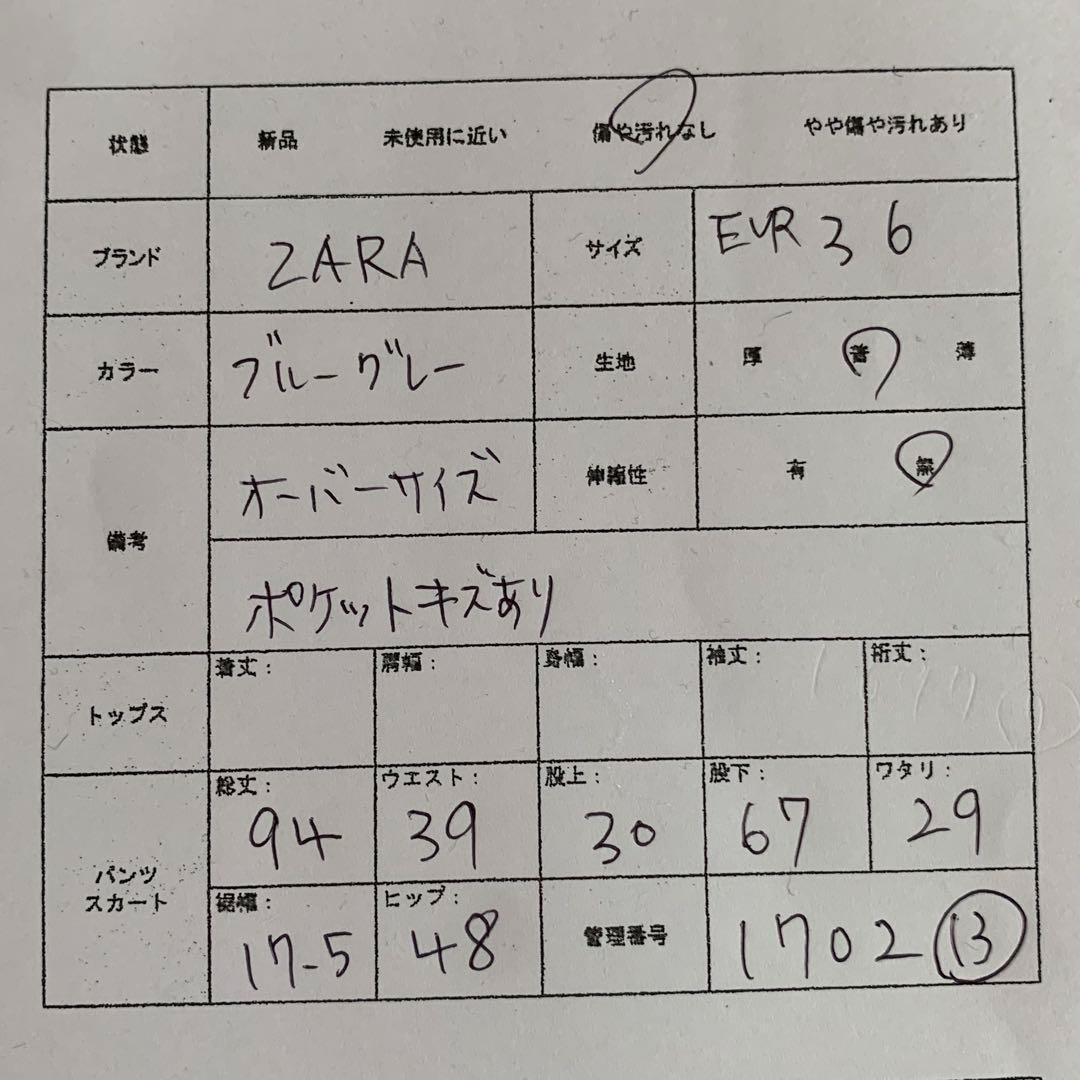 状態 新品 未使用に近い 傷や汚れなし やや傷や汚れあり
ブランド ZARA サイズ EUR 36
カラー ブルーグレー 生地 厚 普 薄
備考 オーバーサイズ 伸縮性 有 無
ポケットキズあり
トップス 着丈： 肩幅： 身幅： 袖丈： 裄丈：
パンツ スカート 総丈： ウエスト： 股上： 股下： ワタリ：
94 39 30 67 29
裾幅： ヒップ： 管理番号
17.5 48 1702 ⑬